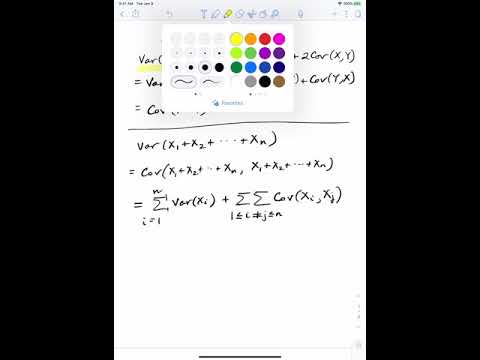 9:41 AM Tue Jan 9
Var( + 2Cov(X,Y)
= Var + Cov(Y,X)
= Cov(
Favorites
Var(X₁+X₂+⋯+Xₙ)
= Cov(X₁+X₂+⋯+Xₙ, X₁+X₂+⋯+Xₙ)
= ∑ᵢ₌₁ⁿ Var(Xᵢ) + ∑∑_{1≤i≠j≤n} Cov(Xᵢ,Xⱼ)